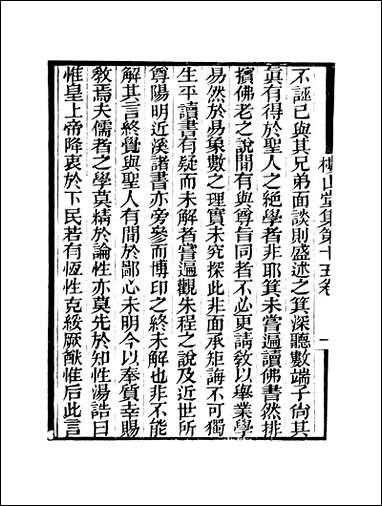 樓山堂集第十五卷 一
不誣已與其兄弟面談則盛述之箕深聽數端子尙其
眞有得於聖人之絕學者非耶箕未嘗遍讀佛書然排
擯佛老之說間有與尊旨同者不必更請敎以舉業學
易然於易象數之理實未究探此非面承矩誨不可獨
生平讀書有疑而未解者嘗遍觀朱程之說及近世所
尊陽明近溪諸書亦旁參而博印之終未解也非不能
解其言終覺與聖人有間於鄙心未明今以奉質幸賜
敎焉夫儒者之學莫精於論性亦莫先於知性湯誥曰
惟皇上帝降衷於下民若有恆性克綏厥猷惟后此言